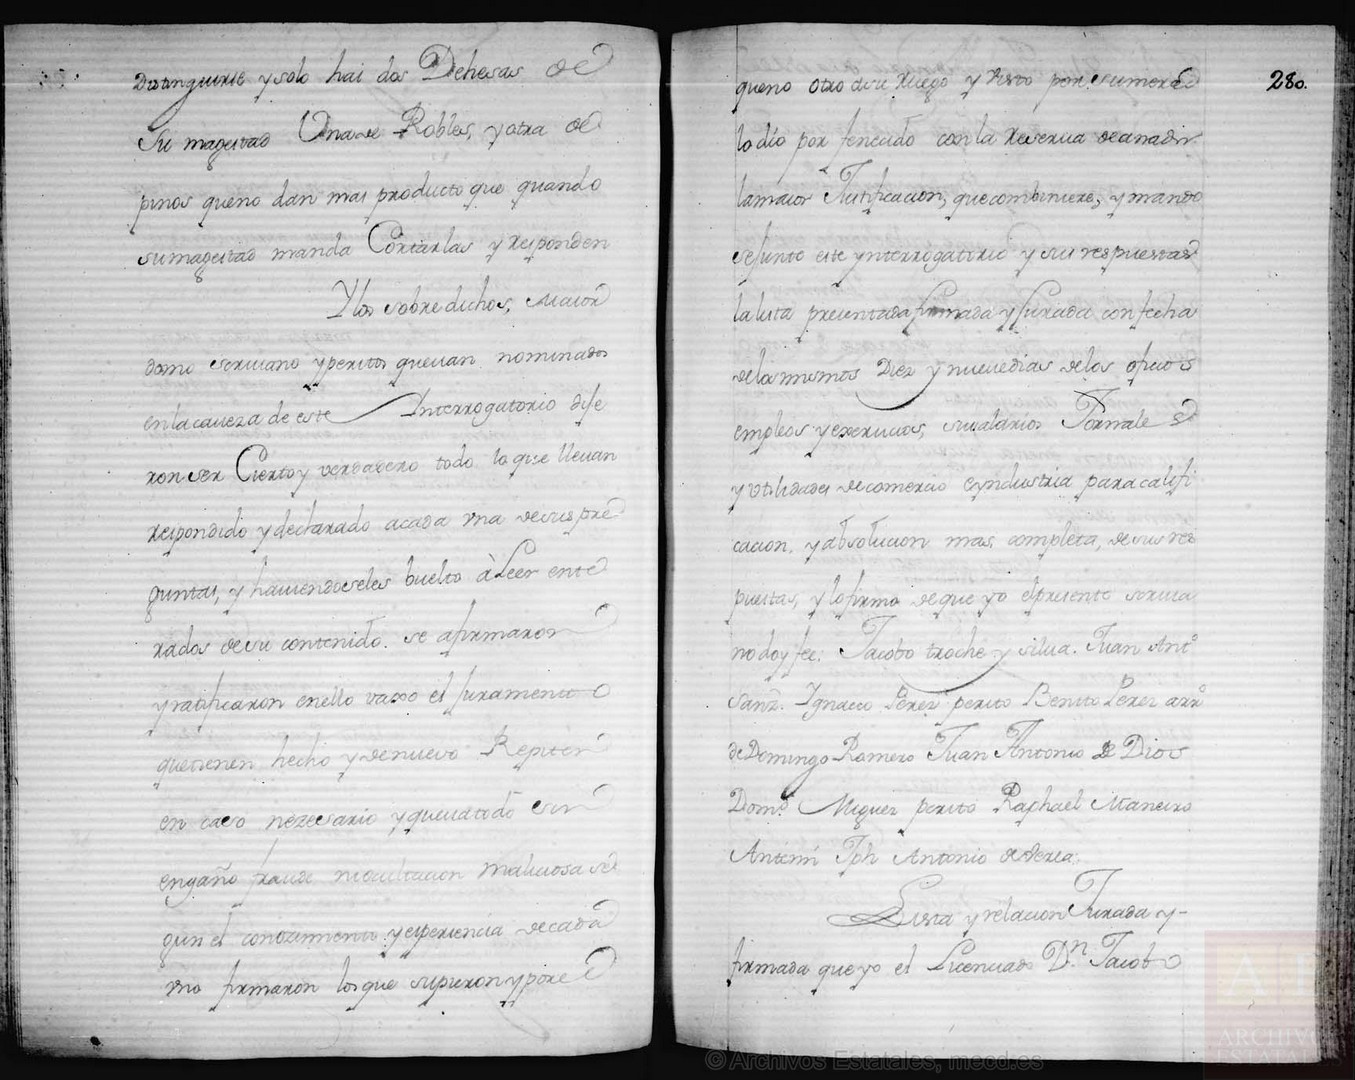 Distinguirse y solo hai dos Dehesas de
su magestad Una de Robles, y otra de
pinos queno dan mas producto que quando
sumagestad manda Cortarlas y responden
Ylos sobredichos, maior
domo escriuano y peritos queuan nominados
enlacaueza de este Interrogatorio dije
ron ser Cierto y verdadero todo lo que lleuan
respondido y declarado acada vna desus pre
guntas, y hauiendoseles buelto à Leer ente
rados desu contenido. se afirmaron
y ratificaron enello vaxo el juramento
quetienen hecho y denuevo Repiten
en caso nezesario y queuatodo sin
engaño fraude niocultacion maliciosa se
gun el conozimiento y esperiencia decada
vno firmaron los que supieron y por el
280.
queno otro asu ruego y visto por sumerced
lo dio por fenecido con la reserua de anadir
lamaior Justificacion, que combiniere, y mando
sejunte este ynterrogatorio y sus respuestas
la lista presentada firmada y Jurada con fecha
delos mismos Diez y nueuedias delos oficios
empleos y exercicios, susalarios Jornales
y vtilidades decomercio eyndustria para califi
cacion, y absolucion mas completa, desus res
puestas, y lo firmo deque yo elpresente escriua
no doy fee: Jacobo troche y silua. Juan Antº
Sanz. Ygnacio Perez perito Benito Perez arrº
de Domingo Romero Juan Antonio de Dios
Domº Miguez perito Raphael Maneiro
Antemi Jph Antonio deVerea.
Lista y relacion Jurada y-
firmada que yo el Licenciado Dn Jacobo
© Archivos Estatales, mecd.es
AE
ARCHIVOS
ESTATALES